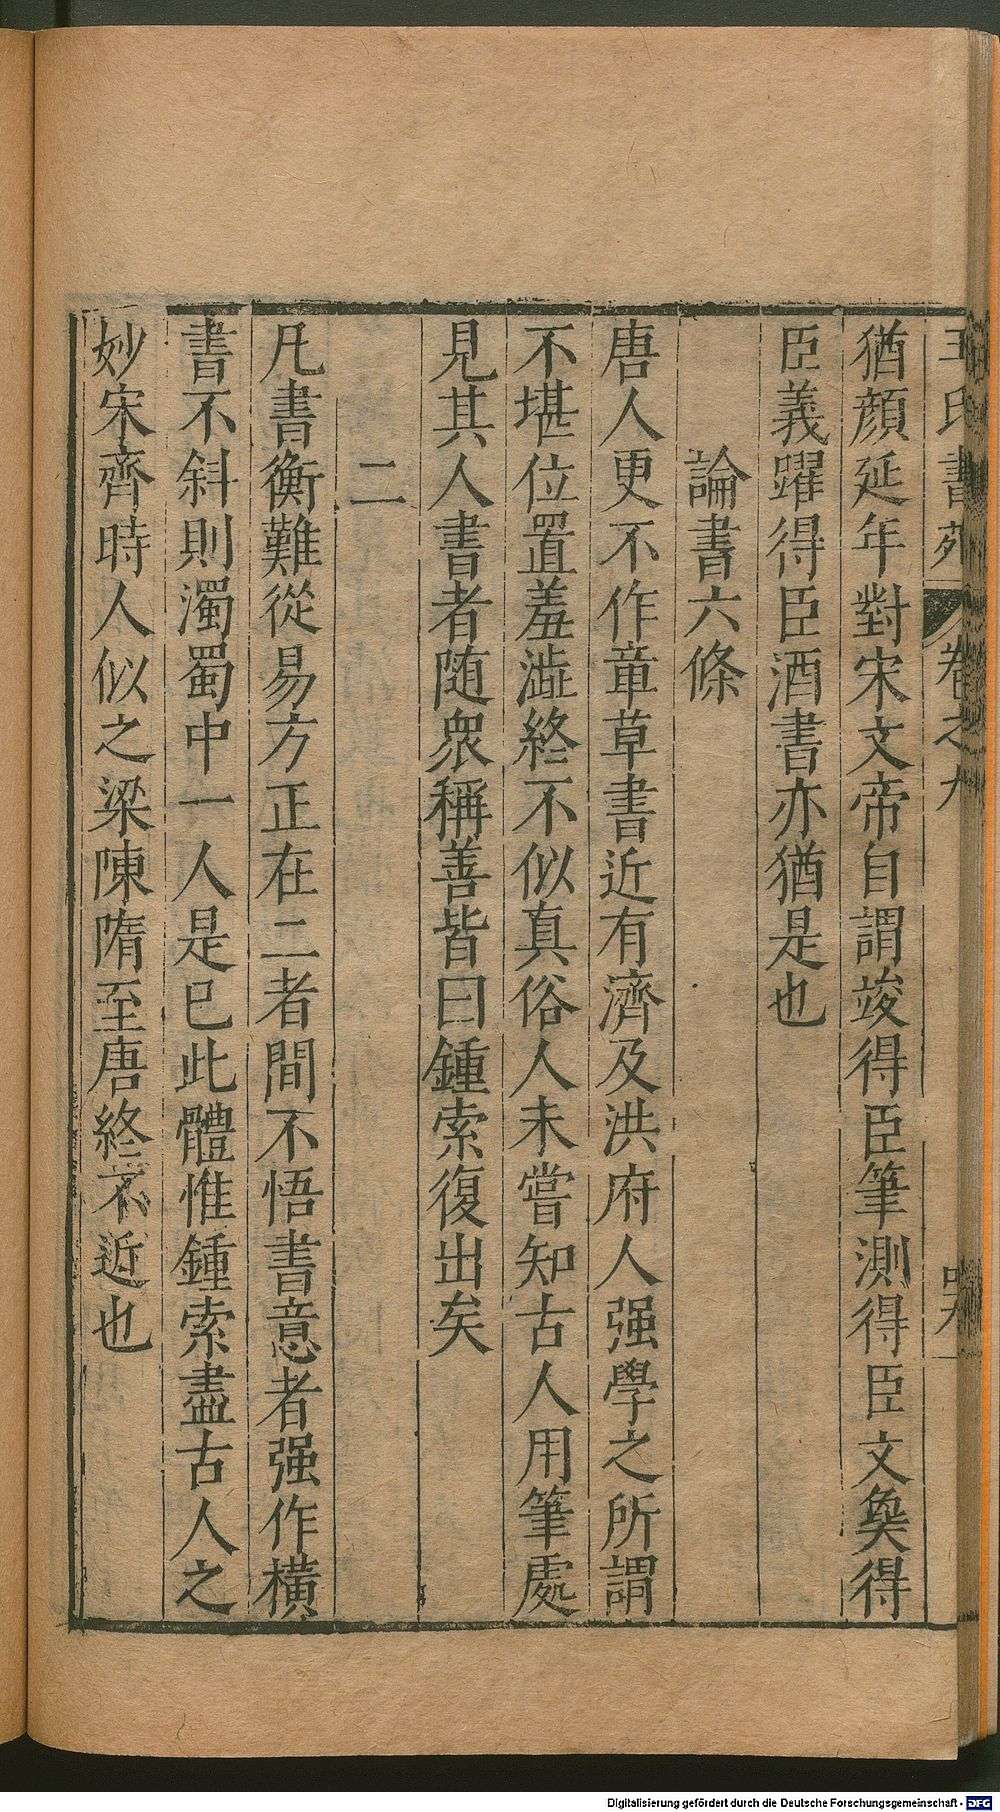 王氏書苑 卷之九
猶顔延年對宋文帝自謂竣得臣筆測得臣文㚟得
臣義躍得臣酒書亦猶是也
論書六條
唐人更不作章草書近有濟及洪府人强學之所謂
不堪位置羞澁終不似真俗人未嘗知古人用筆處
見其人書者随衆稱善皆曰鍾索復出矣
二
凡書衡難從易方正在二者間不悟書意者强作横
書不斜則濁蜀中一人是已此體惟鍾索盡古人之
妙宋齊時人似之梁陳隋至唐終不近也
Digitalisierung gefördert durch die Deutsche Forschungsgemeinschaft - DFG